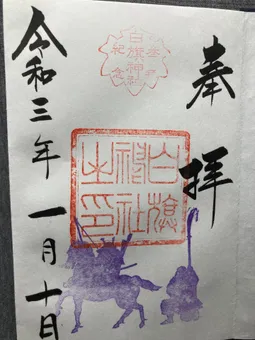 奉拝
白旗神社
参拝記念
白旗神社之印
令和三年一月十日